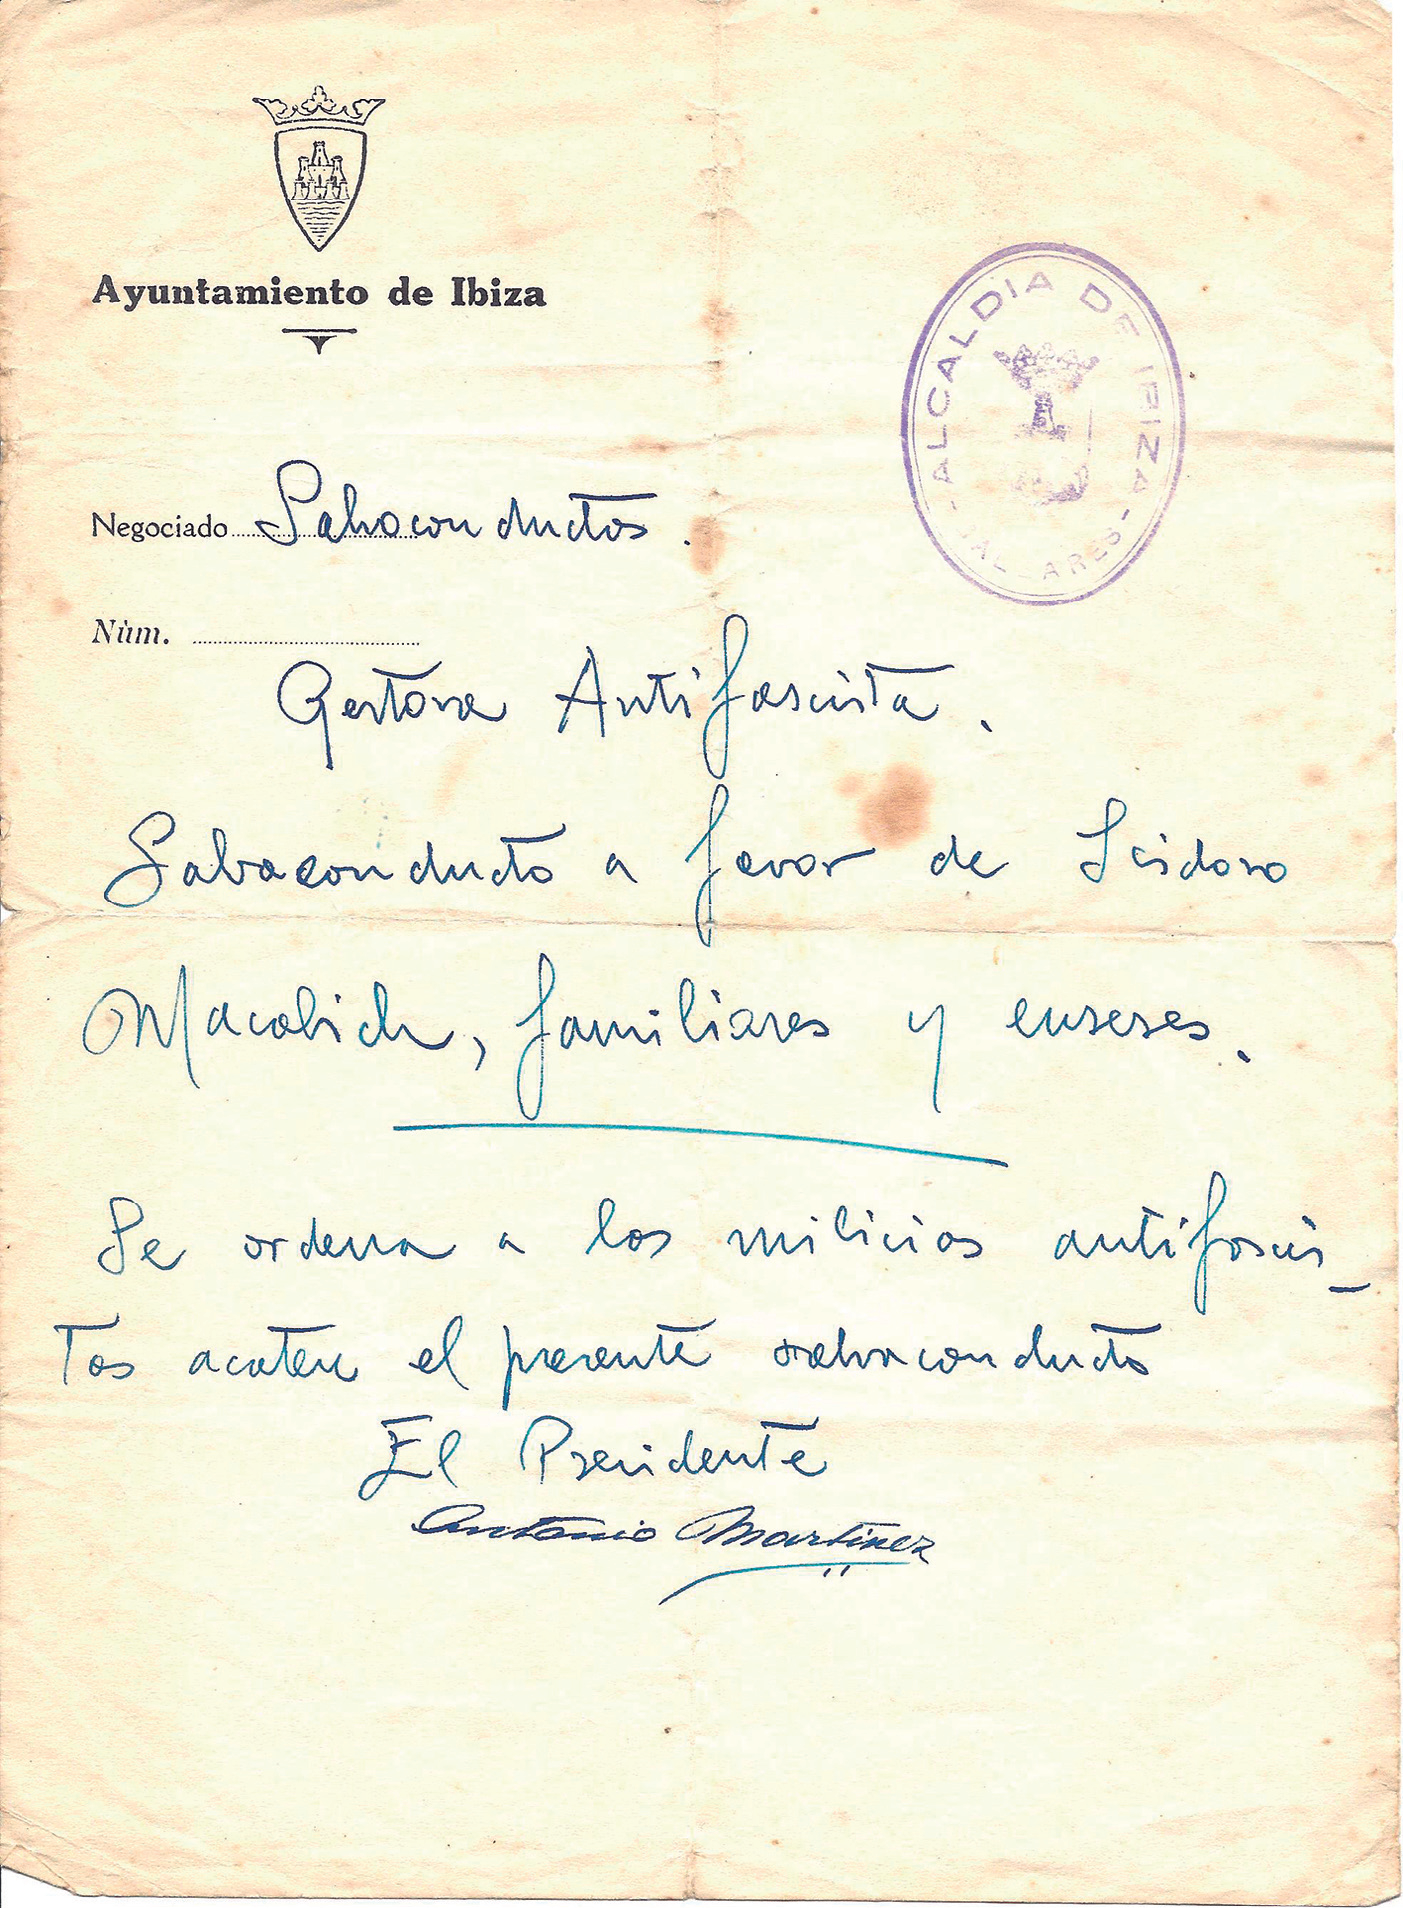 Ayuntamiento de Ibiza
ALCALDIA DE IBIZA
- BALEARES -
Negociado Salvoconductos.
Núm.
Gestora Antifascista.
Salvoconducto a favor de Isidoro
Macabich, familiares y enseres.
Se ordena a las milicias antifascis-
tas acaten el presente salvoconducto
El Presidente
Antonio Martinez